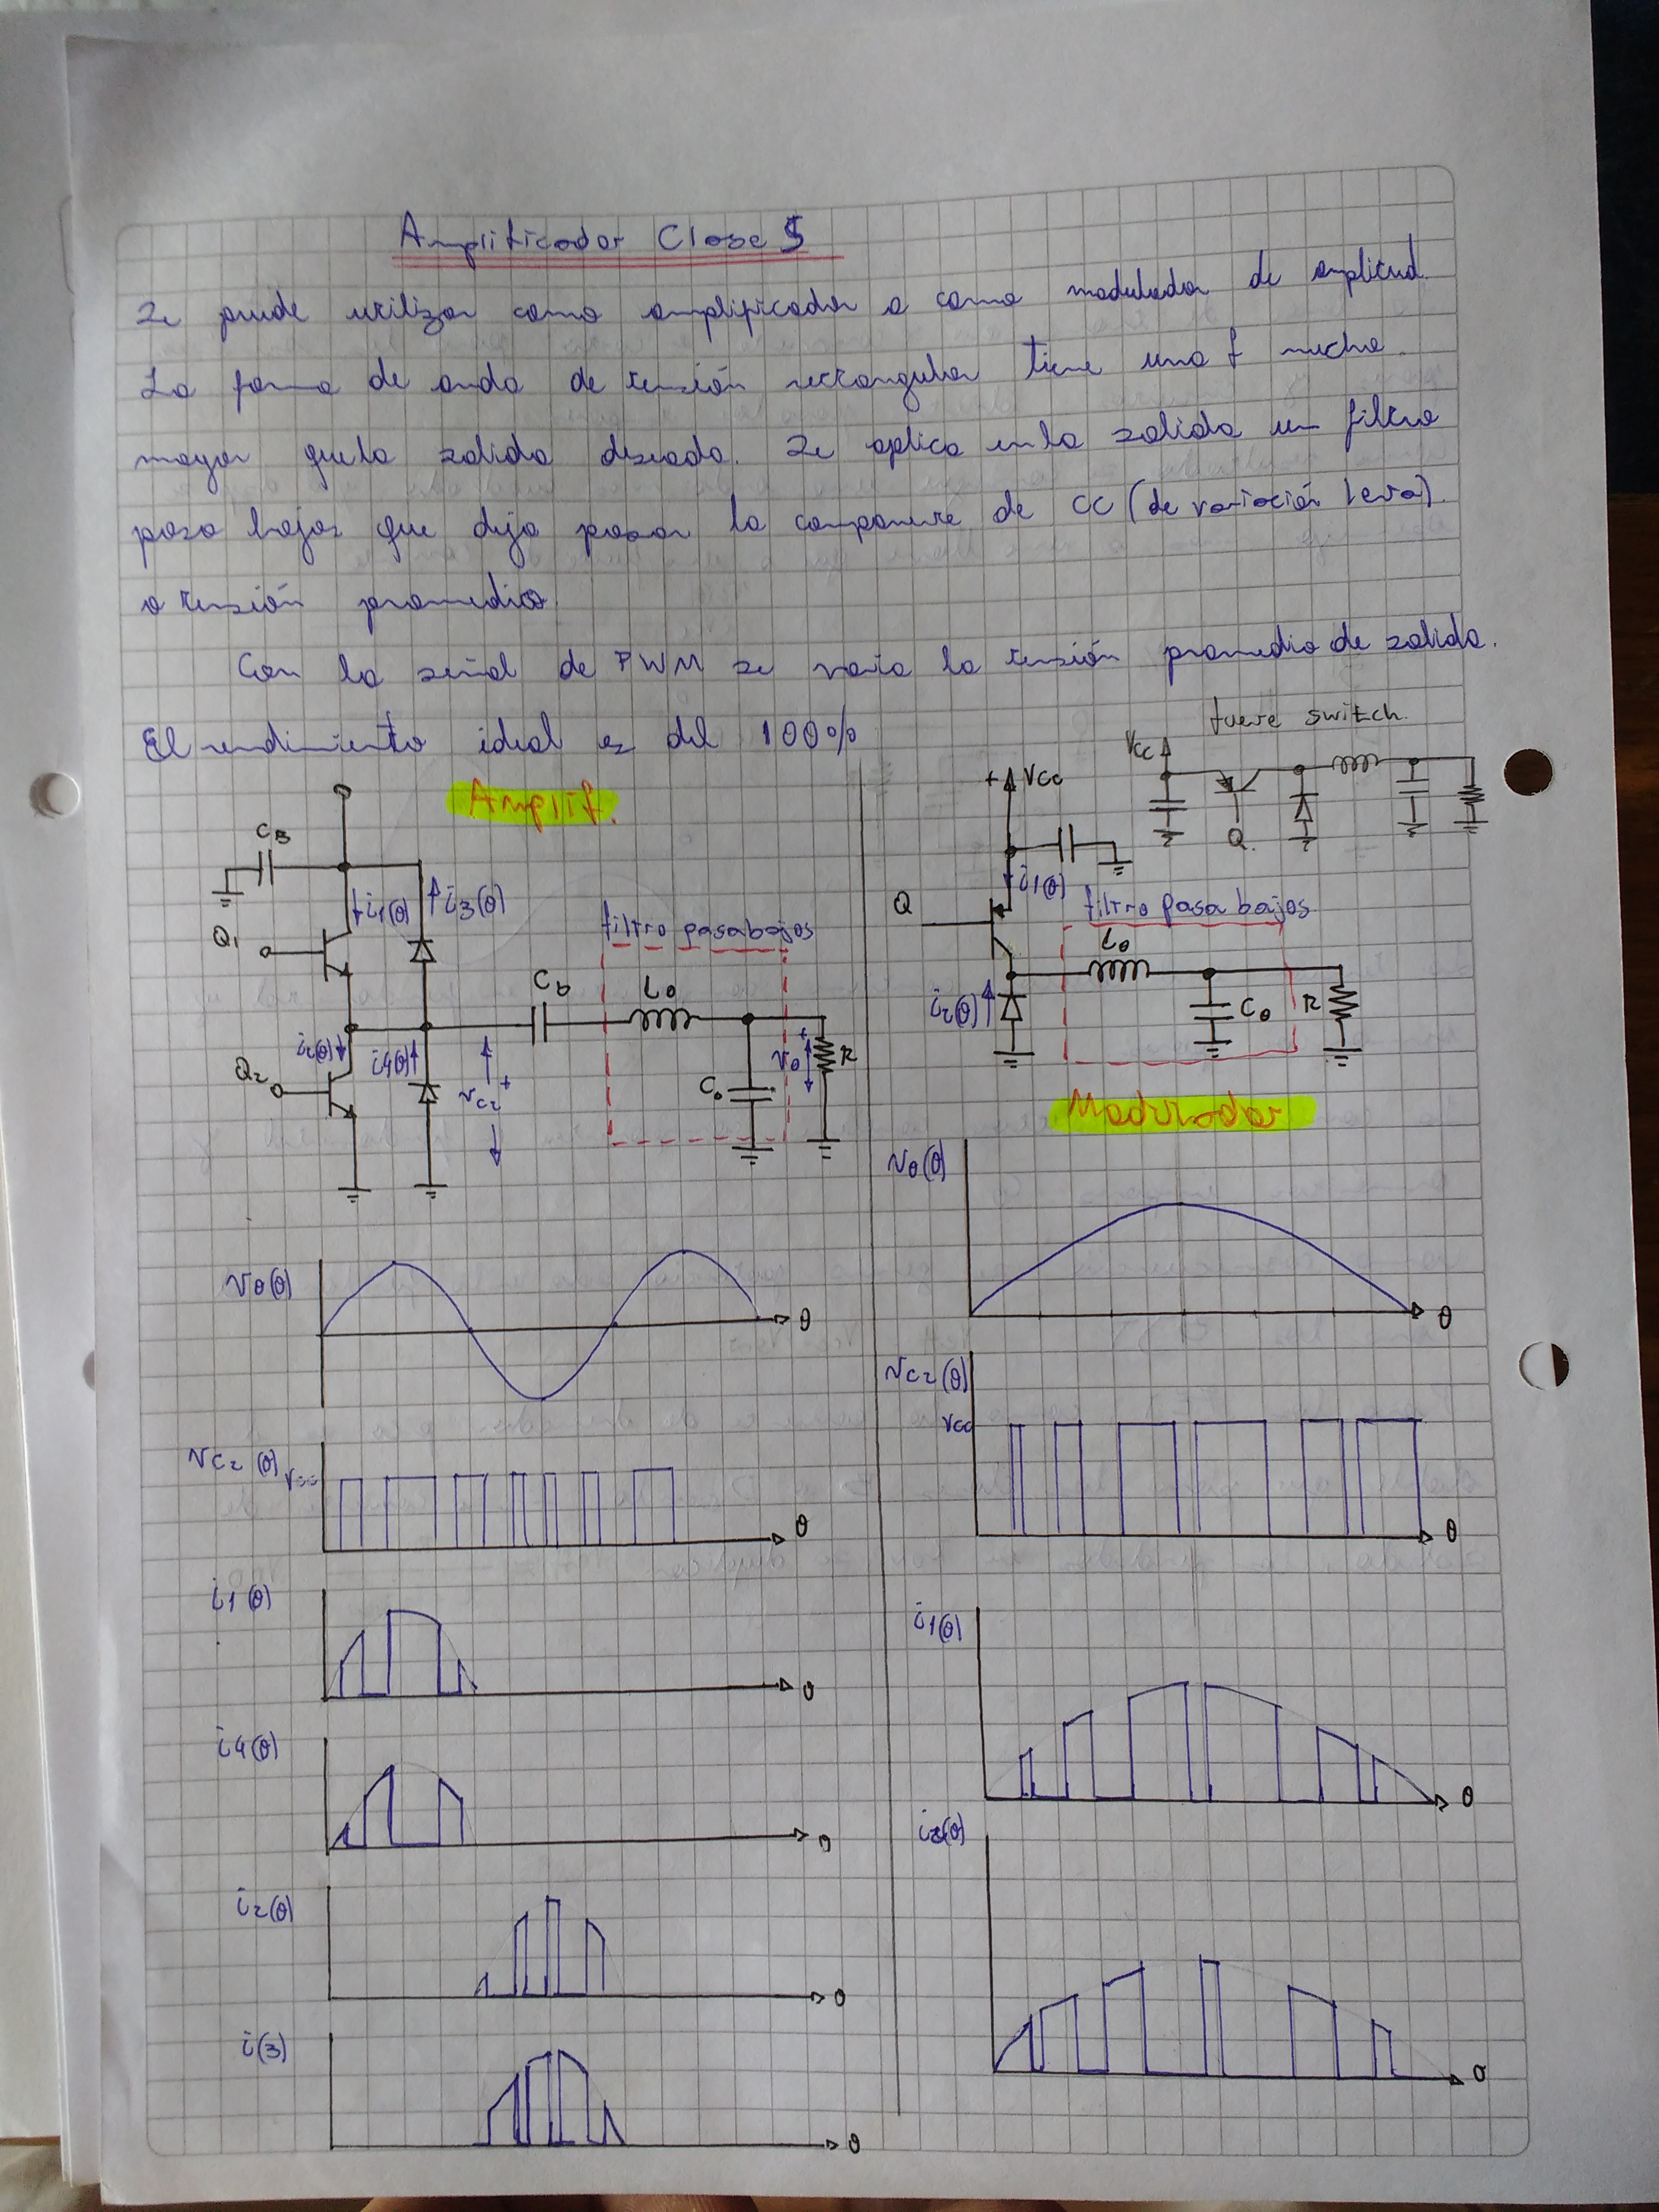 Amplificador Clase S
Se puede utilizar como amplificador o como modulador de amplitud.
La forma de onda de tensión rectangular tiene una f mucho
mayor que la salida deseada. Se aplica en la salida un filtro
pasa bajos que deja pasar la componente de CC (de variación lenta)
o tensión promedio.
Con la señal de PWM se varia la tensión promedio de salida.
El rendimiento ideal es del 100%
fuente switch.
Vcc
Q
Amplif.
CB
i1(θ)
i3(θ)
Q1
filtro pasabajos
Cb
Lo
i2(θ)
i4(θ)
Q2
vc2
+
Co
+
vo
R
+Vcc
i1(θ)
Q
filtro pasa bajos
Lo
i2(θ)
Co
R
Modulador
Vo(θ)
θ
Vc2(θ)
θ
i1(θ)
θ
i4(θ)
θ
i2(θ)
θ
i(3)
θ
Vo(θ)
θ
Vc2(θ)
Vcc
θ
i1(θ)
θ
i2(θ)
θ